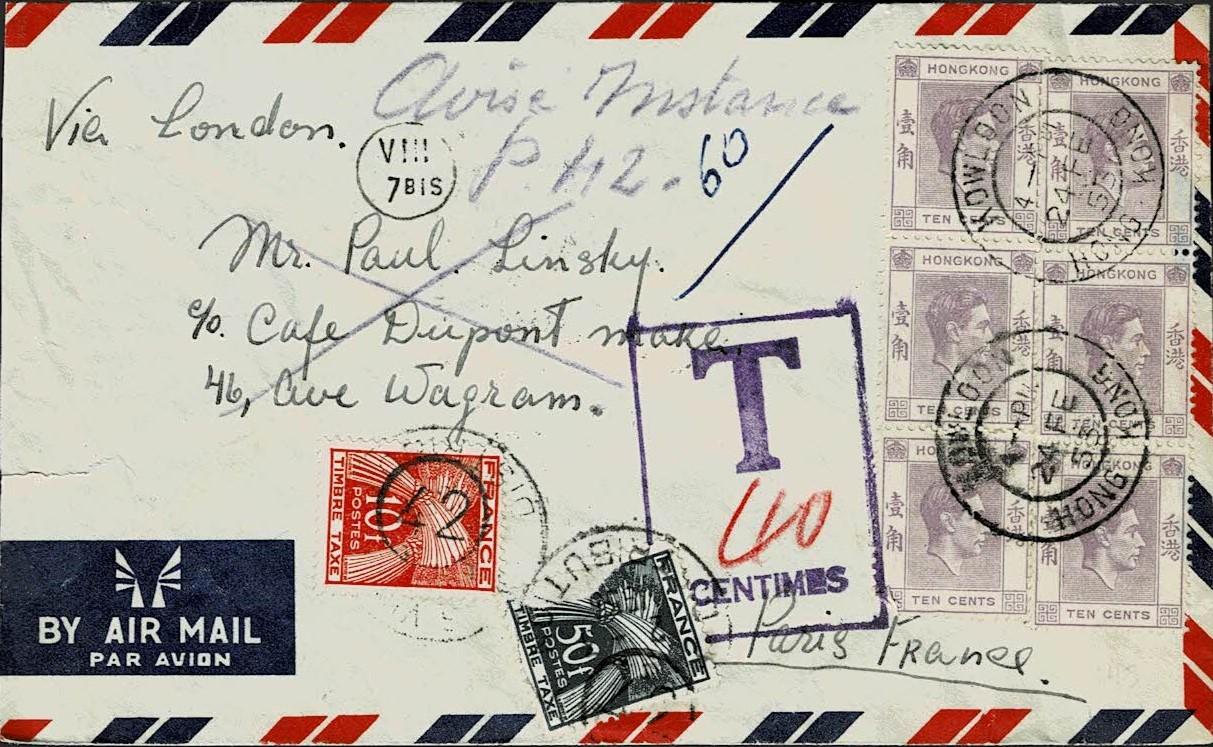 Via London.
Avisé Instance
P. 42.
60
VIII
7BIS
Mr. Paul. Linsky.
c/o. Cafe Dupont make
46, Ave Wagram.
Paris France.
T
40
CENTIMES
BY AIR MAIL
PAR AVION
FRANCE
10f
POSTES
TIMBRE TAXE
FRANCE
50f
POSTES
TIMBRE TAXE
HONGKONG
壹角
香港
TEN CENTS
HONGKONG
壹角
香港
TEN CENTS
HONGKONG
壹角
香港
TEN CENTS
HONGKONG
壹角
香港
TEN CENTS
壹角
香港
TEN CENTS
HONGKONG
角
香港
TEN CENTS
KOWLOON
HONG KONG
24 FE
KOWLOON
HONG KONG
24 FE